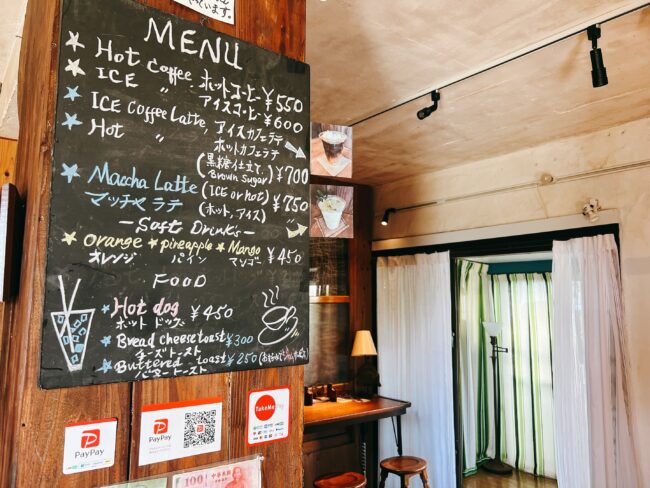 MENU
Hot Coffee ホットコーヒー ¥550
ICE 〃 アイスコーヒー ¥600
ICE Coffee Latte, アイスカフェラテ
Hot 〃 ホットカフェラテ
(黒糖仕立て, Brown Sugar) ¥700
Maccha Latte (ICE or hot) ¥750
マッチャ ラテ (ホット, アイス)
-Soft Drinks-
orange pineapple Mango ¥450
オレンジ パイン マンゴー
FOOD
Hot dog ¥450
ホットドッグ
Bread cheese toast ¥300
チーズトースト
Buttered toast ¥250
バタートースト
PayPay
PayPay
TakeMe Pay
PayPay
100